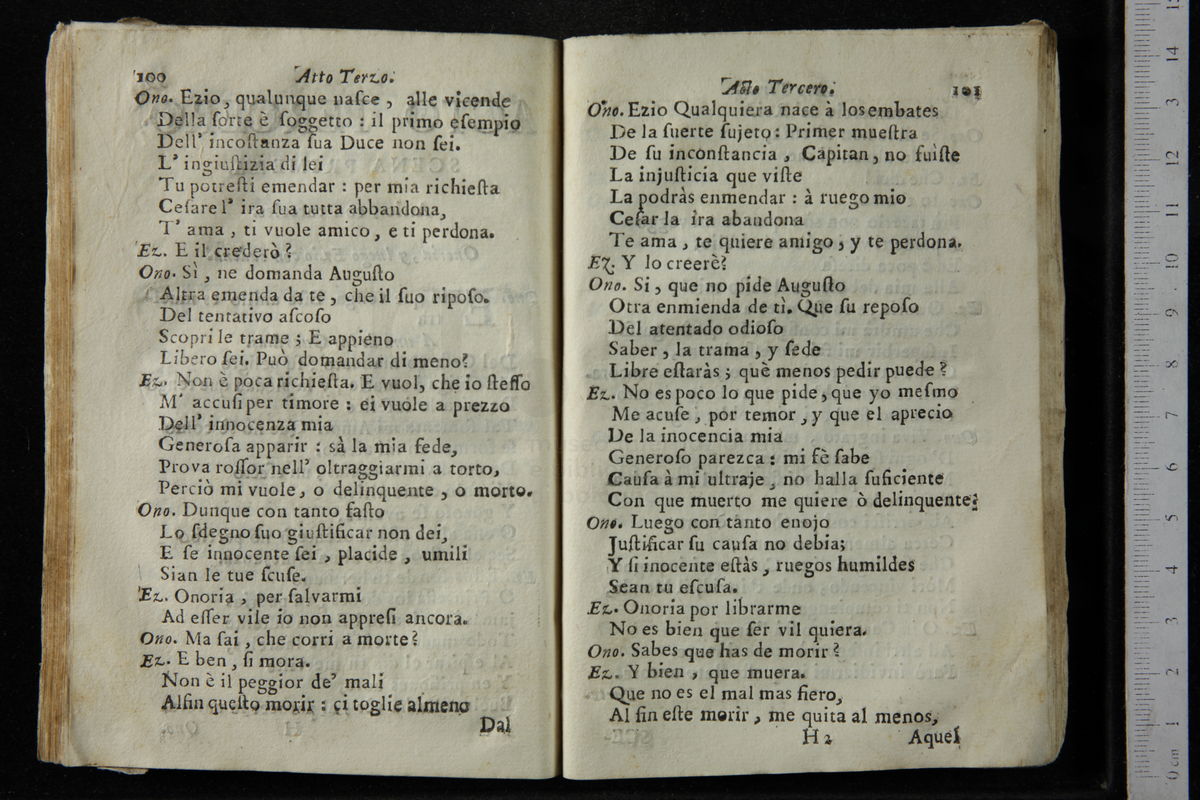 100 Atto Terzo.
Ono. Ezio, qualunque naſce, alle vicende
Della ſorte è ſoggetto: il primo eſempio
Dell' incoſtanza ſua Duce non ſei.
L' ingiuſtizia di lei
Tu potreſti emendar: per mia richieſta
Ceſare l' ira ſua tutta abbandona,
T' ama, ti vuole amico, e ti perdona.
Ez. E il crederò?
Ono. Sì, ne domanda Auguſto
Altra emenda da te, che il ſuo ripoſo.
Del tentativo aſcoſo
Scopri le trame; E appieno
Libero ſei. Può domandar di meno?
Ez. Non è poca richieſta. E vuol, che io ſteſſo
M' accuſi per timore: ei vuole a prezzo
Dell' innocenza mia
Generoſa apparir: sà la mia fede,
Prova roſſor nell' oltraggiarmi a torto,
Perciò mi vuole, o delinquente, o morto.
Ono. Dunque con tanto faſto
Lo ſdegno ſuo giuſtificar non dei,
E ſe innocente ſei, placide, umili
Sian le tue ſcuſe.
Ez. Onoria, per ſalvarmi
Ad eſſer vile io non appreſi ancora.
Ono. Ma ſai, che corri a morte?
Ez. E ben, ſi mora.
Non è il peggior de' mali
Alfin queſto morir: ci toglie almeno
Dal
Acto Tercero. 101
Ono. Ezio Qualquiera nace à los embates
De la ſuerte ſujeto: Primer mueſtra
De ſu inconſtancia, Capitan, no fuiſte
La injuſticia que viſte
La podràs enmendar: à ruego mio
Ceſar la ira abandona
Te ama, te quiere amigo, y te perdona.
Ez. Y lo creerè?
Ono. Si, que no pide Auguſto
Otra enmienda de tì. Que ſu repoſo
Del atentado odioſo
Saber, la trama, y ſede
Libre eſtaràs; què menos pedir puede?
Ez. No es poco lo que pide, que yo meſmo
Me acuſe, por temor, y que el aprecio
De la inocencia mia
Generoſo parezca: mi fè ſabe
Cauſa à mi ultraje, no halla ſuficiente
Con que muerto me quiere ò delinquente?
Ono. Luego con tanto enojo
Juſtificar ſu cauſa no debia;
Y ſi inocente eſtàs, ruegos humildes
Sean tu eſcuſa.
Ez. Onoria por librarme
No es bien que ſer vil quiera.
Ono. Sabes que has de morir?
Ez. Y bien, que muera.
Que no es el mal mas fiero,
Al fin eſte morir, me quita al menos,
H 2 Aquel
0 cm 1 2 3 4 5 6 7 8 9 10 11 12 3 14